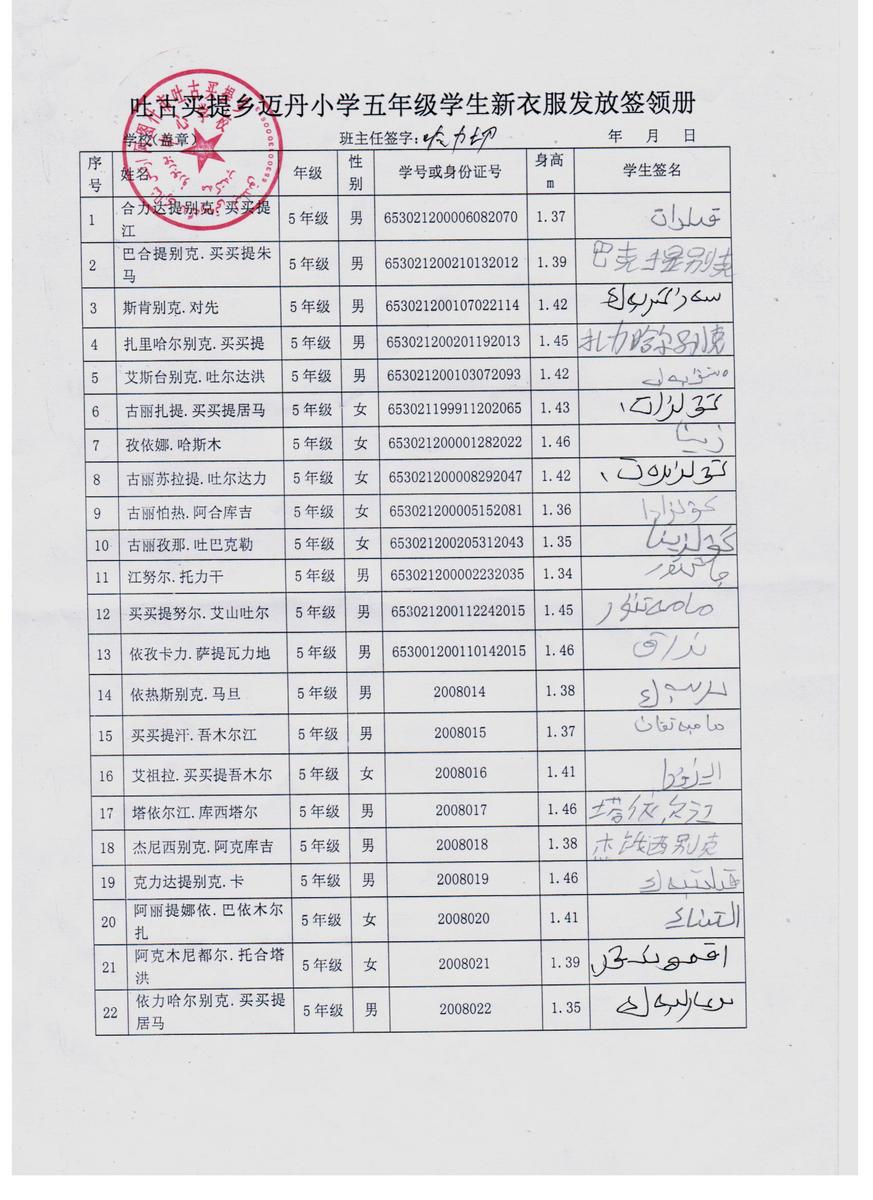 吐古买提乡迈丹小学五年级学生新衣服发放签领册
学校(盖章) 班主任签字: 年 月 日
序号 姓名 年级 性别 学号或身份证号 身高m 学生签名
1 合力达提别克.买买提江 5年级 男 653021200006082070 1.37
2 巴合提别克.买买提朱马 5年级 男 653021200210132012 1.39 巴克提别克
3 斯肯别克.对先 5年级 男 653021200107022114 1.42
4 扎里哈尔别克.买买提 5年级 男 653021200201192013 1.45 扎力哈尔别克
5 艾斯台别克.吐尔达洪 5年级 男 653021200103072093 1.42
6 古丽扎提.买买提居马 5年级 女 653021199911202065 1.43
7 孜依娜.哈斯木 5年级 女 653021200001282022 1.46
8 古丽苏拉提.吐尔达力 5年级 女 653021200008292047 1.42
9 古丽怕热.阿合库吉 5年级 女 653021200005152081 1.36
10 古丽孜那.吐巴克勒 5年级 女 653021200205312043 1.35
11 江努尔.托力干 5年级 男 653021200002232035 1.34
12 买买提努尔.艾山吐尔 5年级 男 653021200112242015 1.45
13 依孜卡力.萨提瓦力地 5年级 男 653001200110142015 1.46
14 依热斯别克.马旦 5年级 男 2008014 1.38
15 买买提汗.吾木尔江 5年级 男 2008015 1.37
16 艾祖拉.买买提吾木尔 5年级 女 2008016 1.41
17 塔依尔江.库西塔尔 5年级 男 2008017 1.46 塔依尔江
18 杰尼西别克.阿克库吉 5年级 男 2008018 1.38 西别克
19 克力达提别克.卡 5年级 男 2008019 1.46
20 阿丽提娜依.巴依木尔扎 5年级 女 2008020 1.41
21 阿克木尼都尔.托合塔洪 5年级 女 2008021 1.39
22 依力哈尔别克.买买提居马 5年级 男 2008022 1.35